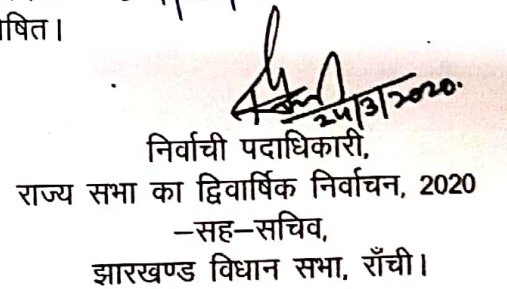 षित।
24/3/2020.
निर्वाची पदाधिकारी,
राज्य सभा का द्विवार्षिक निर्वाचन, 2020
–सह–सचिव,
झारखण्ड विधान सभा, राँची।